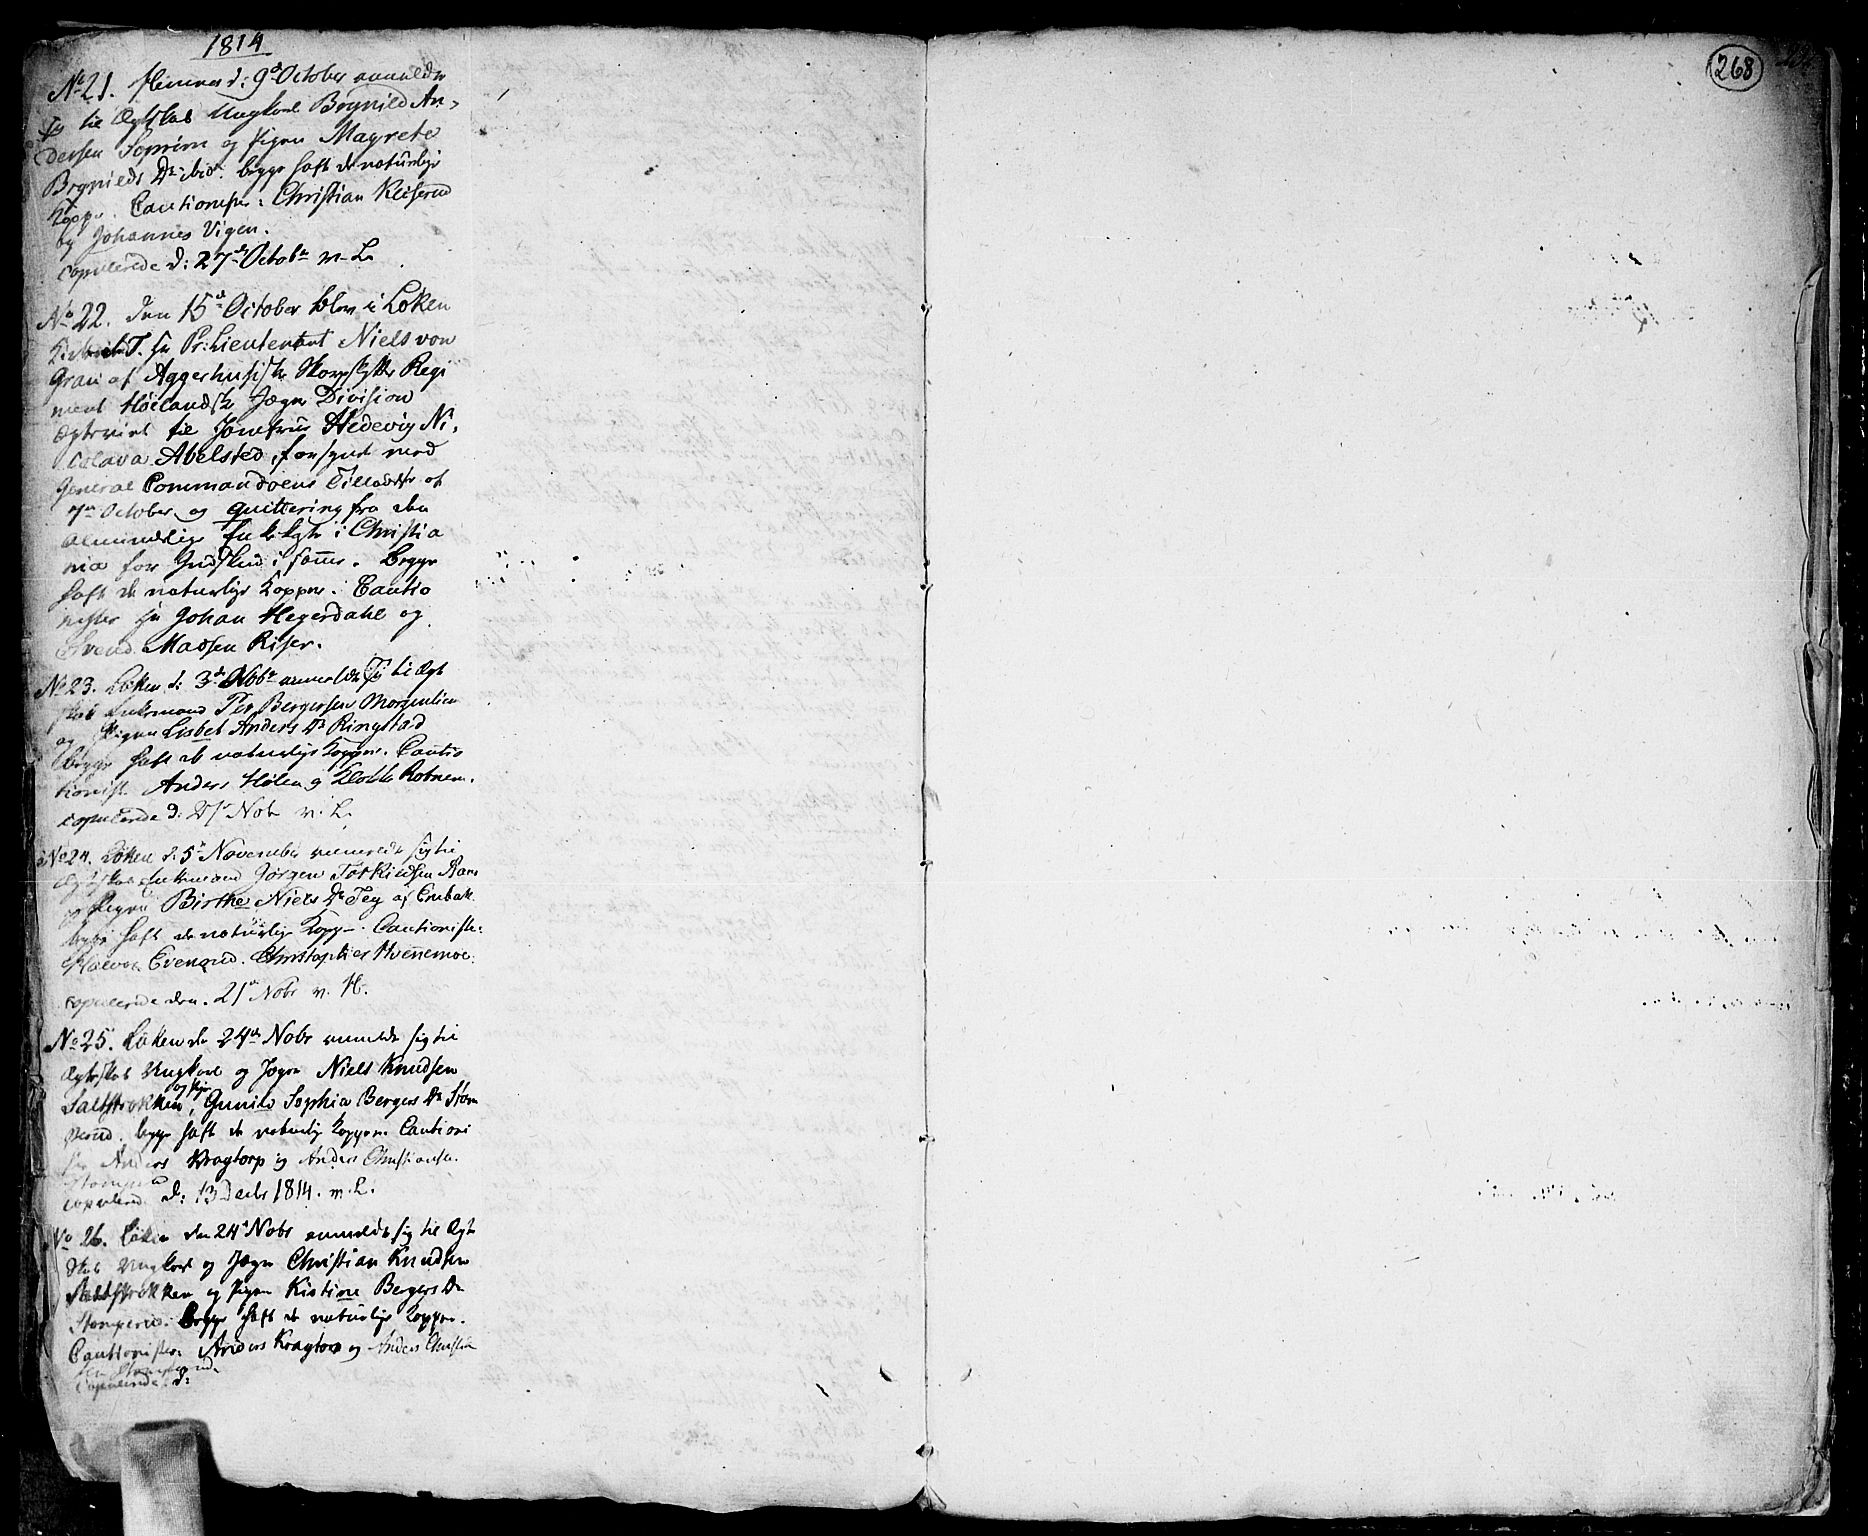 1814
268
No 21. Hemnes d: 9de October anmeldte
sig til Ægteskab Ungkarl Brynild An-
dersen Sonrim og Pigen Magrete
Brynilds Dr ibid. begge haft de naturlige
Kopper. Cautionister: Christian Kliserud
og Johannes Vigen.
copulerede d: 27de Octobr v. L.
No 22. den 15de October blev i Løken
Hr Pr: Lieutenant Niels von
Grau af Aggerhusiske Skarpskytter Regi
ment Høilandske Jæger Division
Ægteviet til Jomfrue Hedevig Ni-
colava Abelsted, forsynet med
General Commandoens Tilladelse af
7de October og quittering fra den
almindelige Enkekasse i Christia
nia for Indskud i samme. Begge
haft de naturlige Kopper. Cautio
nister Hr Johan Hegerdahl og
Svend Madsen Riser.
No 23. Løken d: 3de Nobr anmeldte sig til Ægt
skab Enkemand Peer Bergersen Morgenlien
og Pigen Lisbet Anders Dr Ringstad
begge haft de naturlige Kopper. Cautio
nister Anders Hølen og Rotnem.
copulerede d: 21 Nobr v. L.
No 24. Løken d: 5te November anmeldte sig til
Ægteskab Enkemand Jørgen Torkildsen
og Pigen Birthe Niels Dr Teg af Enebak
begge haft de naturlige Kopp-. Cautioniste:
Halvor Evenrud. Christopher Huenemoe.
copulerede den. 21de Nobr v. H.
No 25. Løken de 24de Nobr anmeldte sig til
Ægteskab Ungkarl og Jæger Niels Knudsen
Saltstrokken, og Pige Gunild Sophia Bergers Dr Stom
perud. begge haft de naturlige Kopper. Cautioni
ster Anders Kragtorp og Anders Christiansen
Stomperud
copulered. d: 13 Decbr 1814. v. L.
No 26. Løken den 24de Nobr anmeldte sig til Ægte
skab Ungkarl og Jæger Christian Knudsen
Saltstrokken og Pigen Kistine Bergers Dr
Stomperud. Begge haft de naturlige Kopper.
Cautionister Anders Kragtorp og Anders Christian
sen Stomperud.
Copulerede. d: